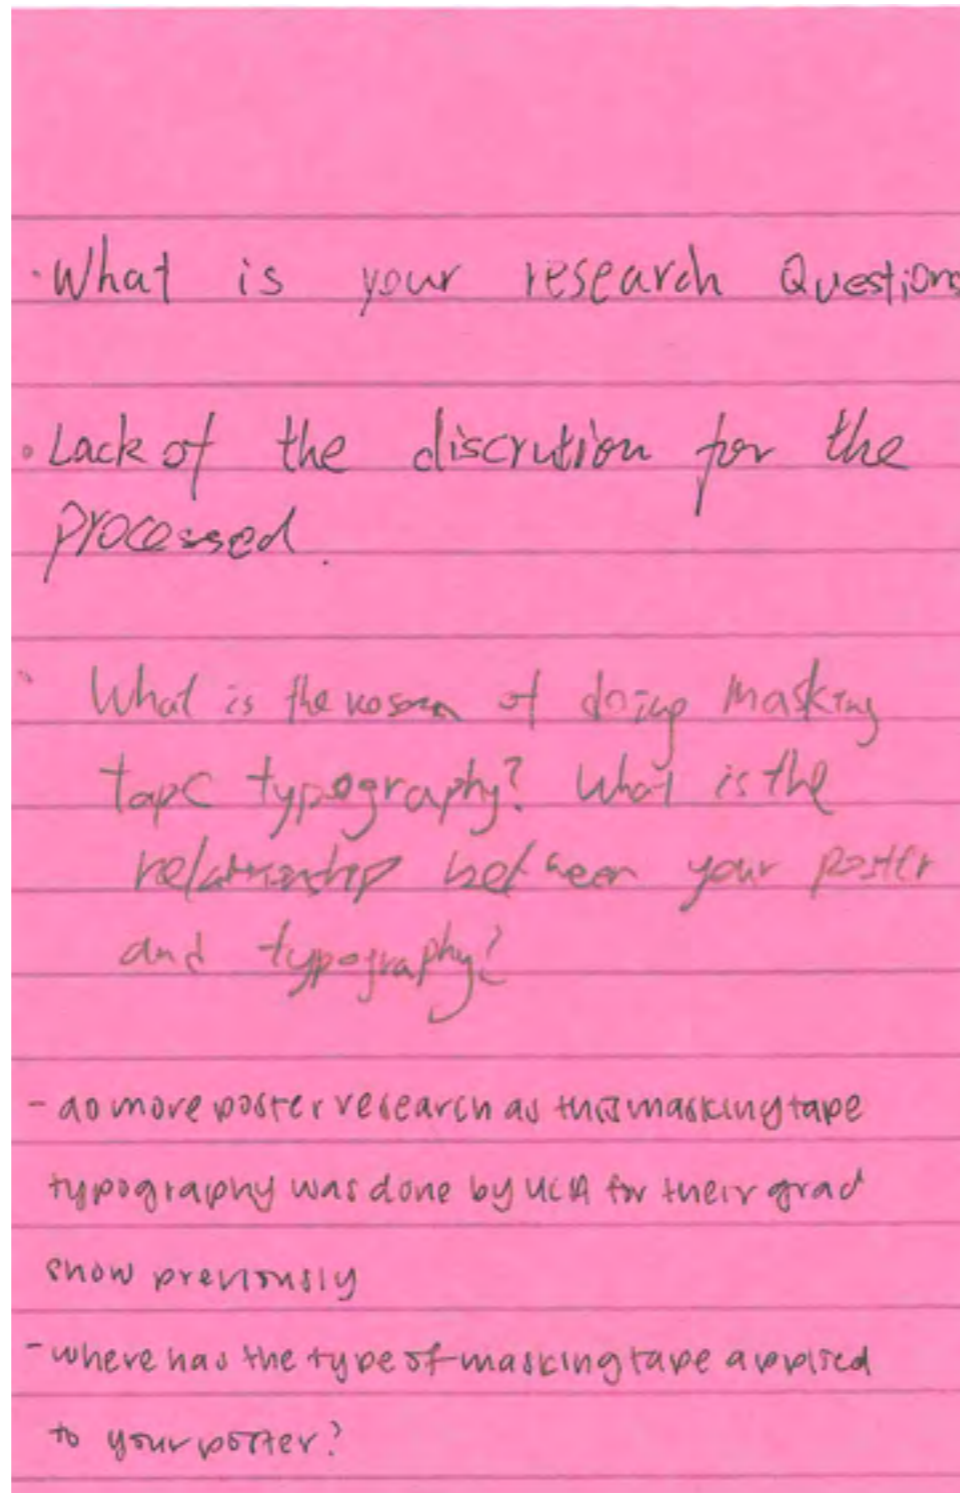 · What is your research Questions
· Lack of the discrution for the
processed.
· What is the of doing masking
tape typography? What is the
relationship between your poster
and typography?
- do more poster research as this masking tape
typography was done by UCA for their grad
show previously
- where has the type of masking tape applied
to your poster?